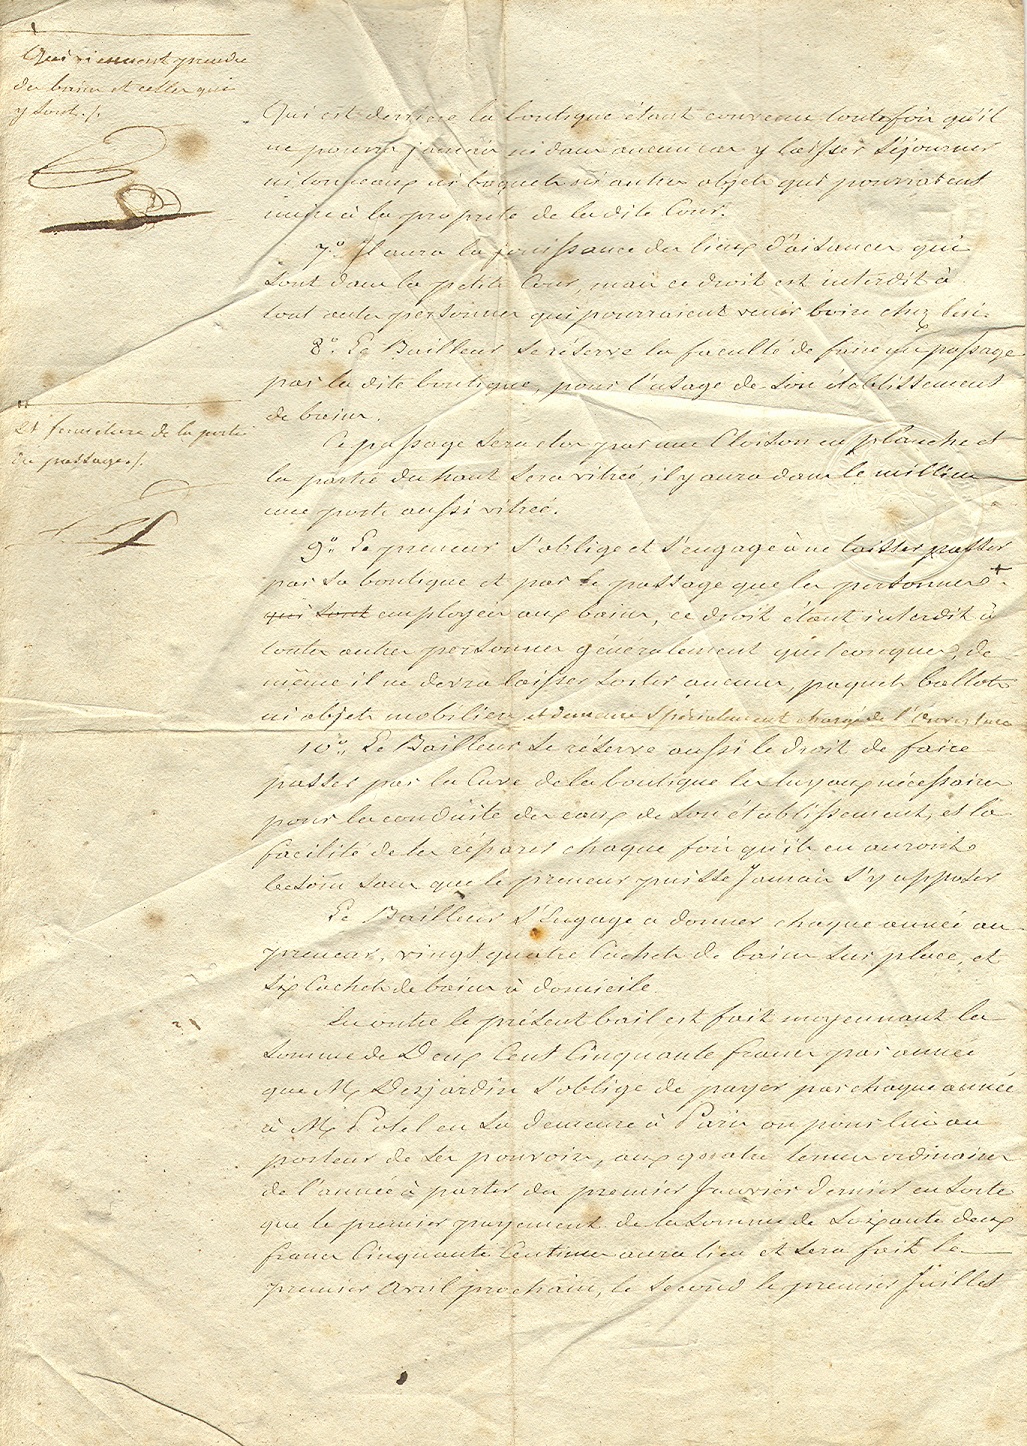 Qui viennent prendre
des bains et celles qui
y sont ./.
Qui est derriere la boutique étant convenu toutefois qu'il
ne pourra jamais ni dans aucun cas y laisser séjourner
ni tonneaux ni baquets ni autres objets qui pourraient
nuire à la propreté de la dite Cour.
7.° Il aura la jouissance des lieux d'aisances qui
sont dans la petite Cour, mais ce droit est interdit à
tout autres personnes qui pourraient venir boire chez lui.
8.° Le Bailleur se réserve la faculté de faire un passage
par la dite boutique, pour l'usage de son établissement
de bains.
Et fermeture de la porte
du passage ./.
Ce passage sera clos par une Cloison en planche et
la partie du haut sera vitrée il y aura dans le millieu
une porte aussi vitrée.
9.° Le preneur s'oblige et s'engage à ne laisser passer
par sa boutique et par le passage que les personnes +
qui sont employées aux bains, ce droit étant interdit à
toutes autres personnes généralement quelconques, de
même il ne devra laisser sortir aucuns, paquets ballots
ni objets mobiliers, et demeure spécialement chargé de l'ouverture
10.° Le Bailleur se réserve aussi le droit de faire
passer par la Cave de la boutique les tuyaux nécessaires
pour la conduite des eaux de son établissement, et la
facilité de les réparer chaque fois qu'ils en auront
besoin sans que le preneur puisse Jamais s'y opposer
Le Bailleur s'Engage a donner chaque année au
preneur, vingt quatre Cachets de bains sur place, et
Six Cachets de bains à domicile
En outre le présent bail est fait moyennant la
somme de Deux Cent Cinquante francs par année
que M. Desjardin s'oblige de payer par chaque année
à M. Potel en sa demeure à Paris ou pour lui au
porteur de ses pouvoirs, aux quatre termes ordinaires
de l'année à partir du premier Janvier dernier en sorte
que le premier payement de la somme de Soixante deux
francs Cinquante Centimes aura lieu et sera fait le
premier Avril prochain, le second le premier Juillet